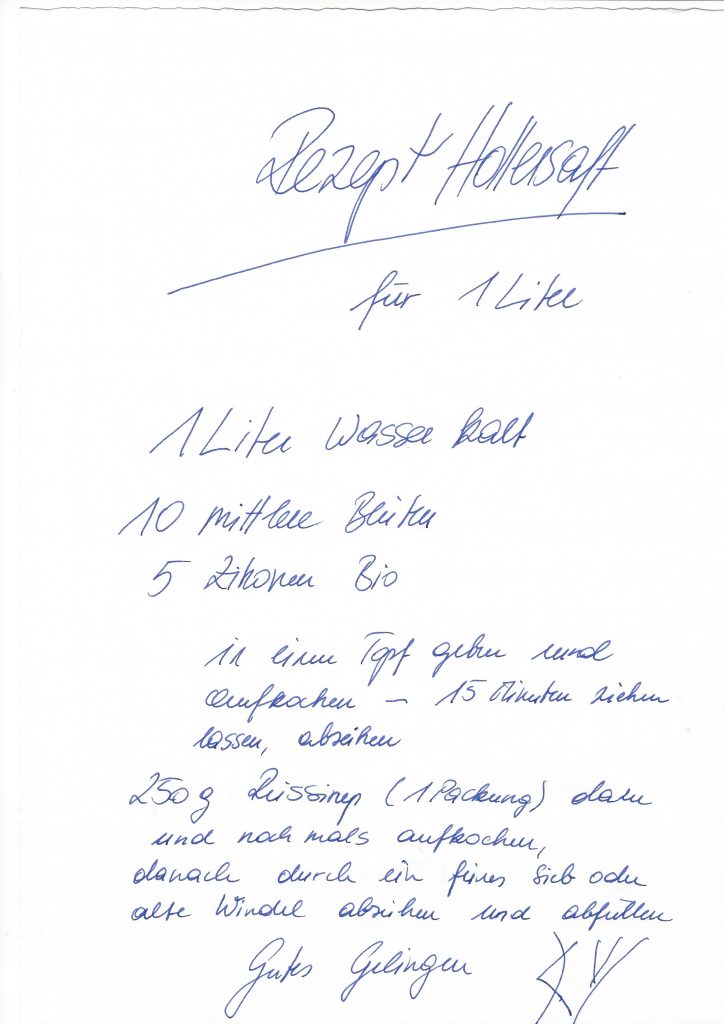 Rezept Hollersaft
für 1 Liter
1 Liter Wasser kalt
10 mittlere Blüten
5 Zitronen Bio
in einen Topf geben und
aufkochen – 15 Minuten ziehen
lassen, abseihen
250 g (1 Packung) dazu
und noch mals aufkochen,
danach durch ein feines Sieb oder
alte Windel abseihen und abfüllen
Gutes Gelingen